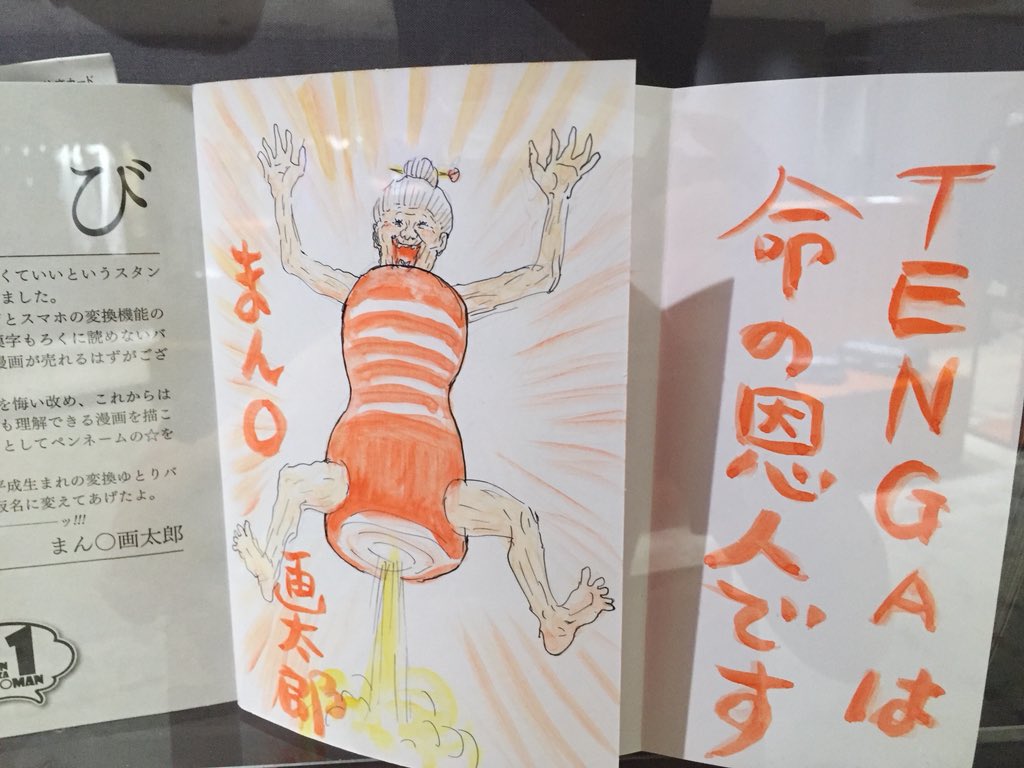 TENGAは
命の恩人です
まん〇
画太郎
び
くていいというスタン
ました。
とスマホの変換機能の
漢字もろくに読めないバ
漫画が売れるはずがござ
を悔い改め、これからは
も理解できる漫画を描こ
としてペンネームの☆を
平成生まれの変換ゆとりバ
仮名に変えてあげたよ。
ーーッ!!!
まん〇画太郎
1
MAN